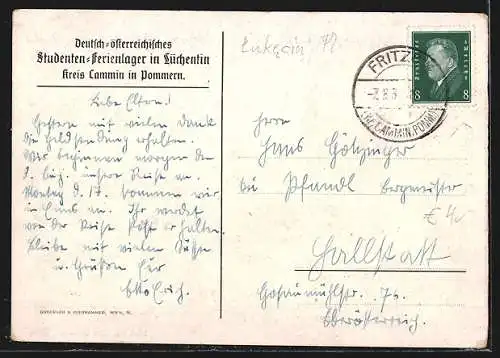 Deutsch-österreichisches
Studenten-Ferienlager in Lüchentin
Kreis Cammin in Pommern.
Liebe Eltern!
Gestern mit vielen Dank
die Geldsendung erhalten.
Wir beginnen morgen den
8. Aug. unsere Reise u.
Montag d. 17. kommen wir
in Linz an. Ihr werdet
von der Reise Post erhalten.
Bleibe mit vielen Küssen
u. Grüßen Euer
Erich.
Lukęcin
FRITZ
-7.8.3
(KR.CAMMIN.POMM)
Deutsches Reich
8 8
Herrn
Hans Götzinger
bei Pfandl Bergmeister
€ 4,-
Hallstatt
Gosaumühlstr. 76.
Oberösterreich.